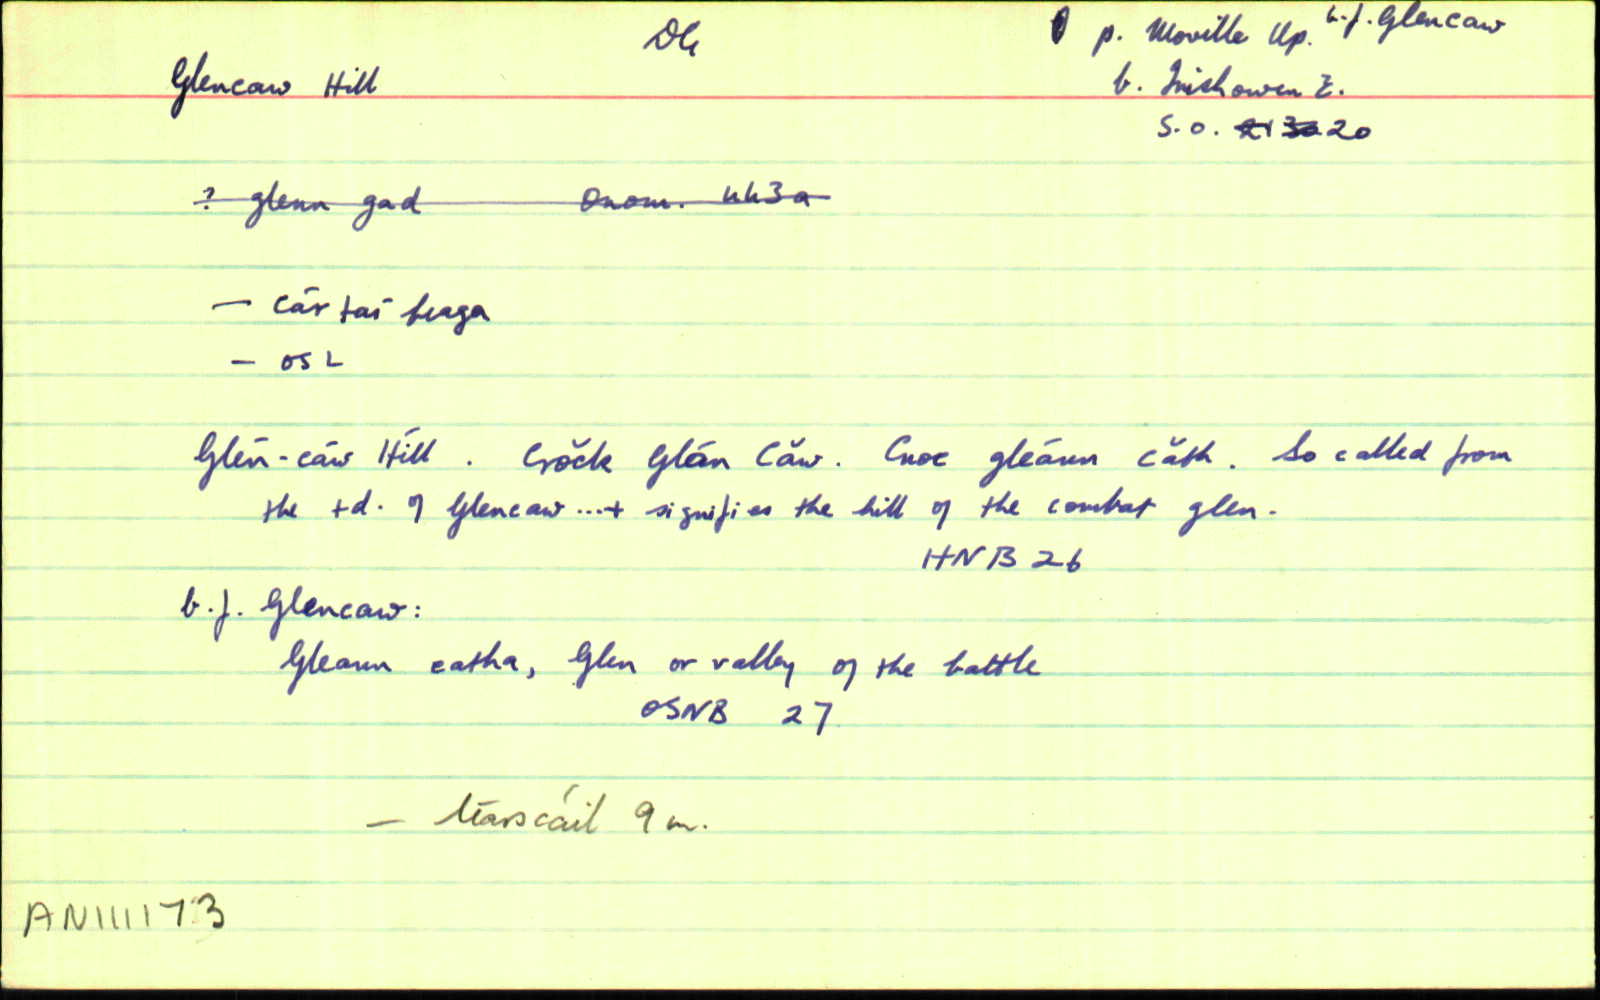 DG
p. Moville Up. b.f. Glencaw
Glencaw Hill
b. Inishowen E.
S.O. 20
? glenn gad Onom. 443a
— cártaí beaga
— OSL
Glĕn-cāw Hill. Crŏck Glăn Căw. Cnoc gleánn căth. So called from
the td. of Glencaw ...+ signifies the hill of the combat glen.
HNB 26
b.f. Glencaw:
Gleann catha, Glen or valley of the battle
OSNB 27
— léarscáil 9 m.
AN111173